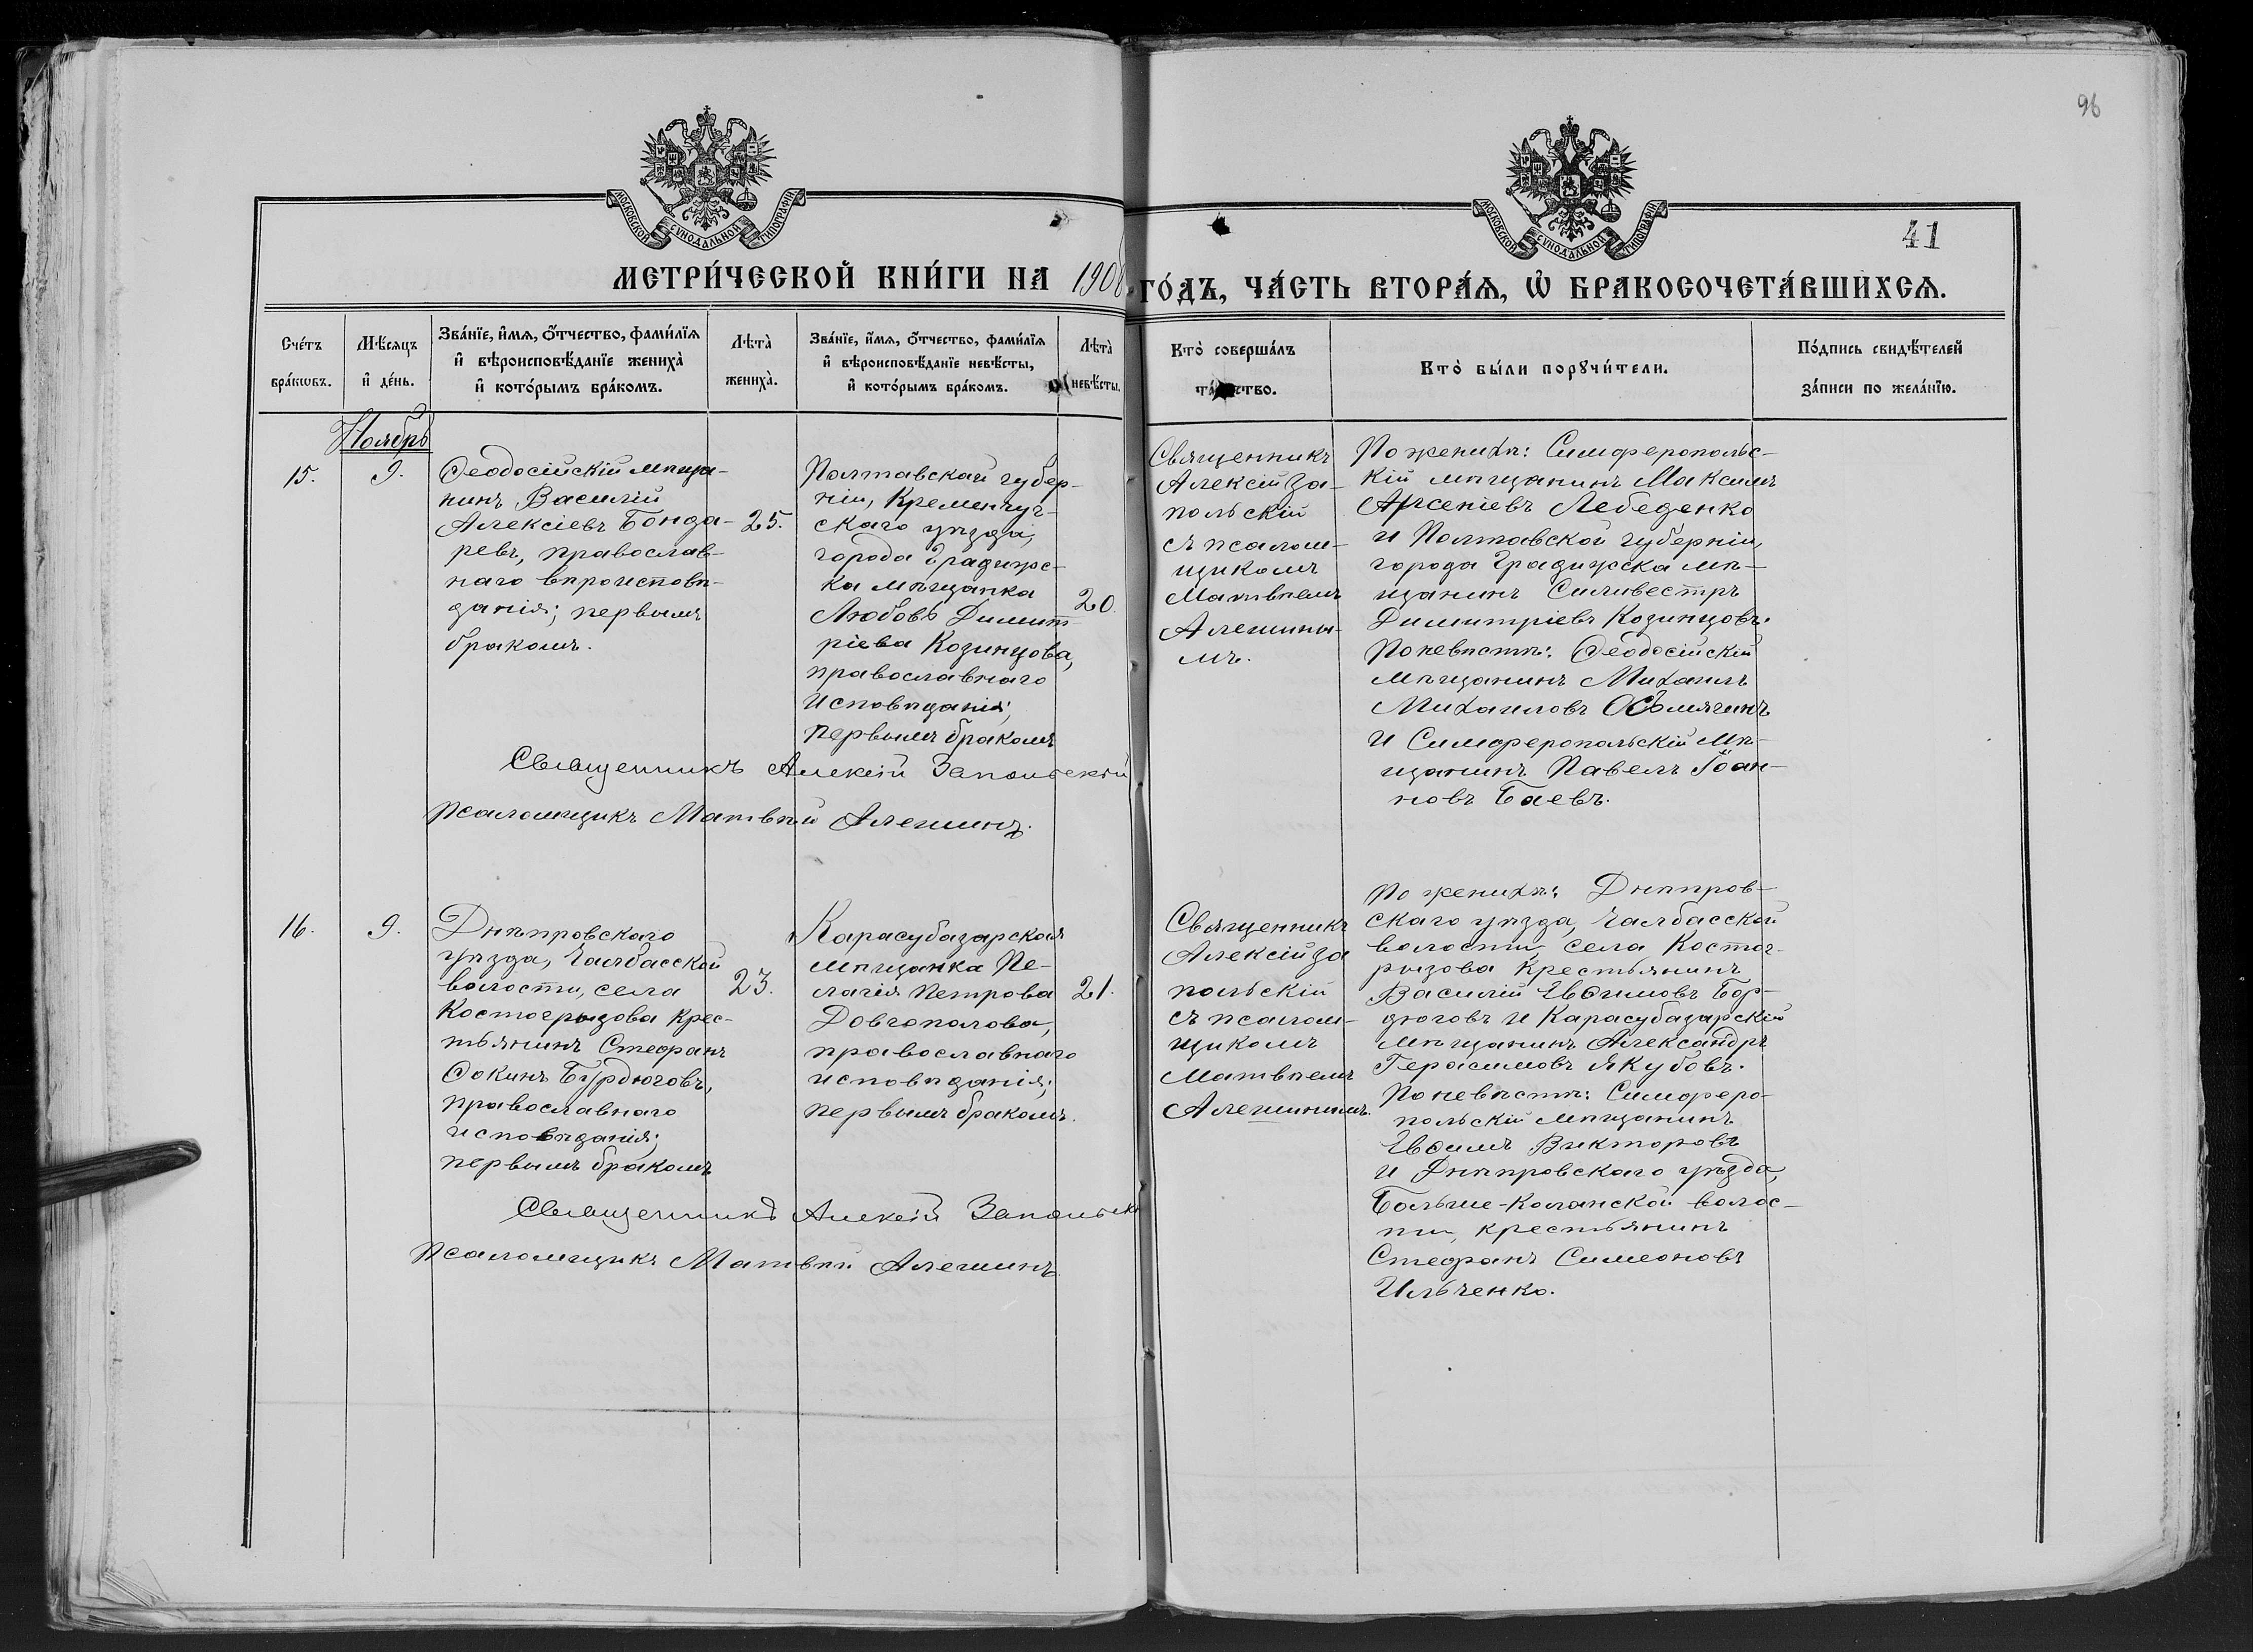 96
МОСКОВСКОЙ СѴНОДАЛЬНОЙ ТИПОГРАФІИ
МОСКОВСКОЙ СѴНОДАЛЬНОЙ ТИПОГРАФІИ
41
МЕТРИ́ЧЕСКОЙ КНИ́ГИ НА 1908 ГО́ДЪ, ЧА́СТЬ ВТОРА́Ѧ, Ѡ҆ БРАКОСОЧЕТА́ВШИХСѦ.
Сче́тъ
бра́кѡвъ.
Мѣ́сѧцъ
и҆ де́нь.
Зва́нїе, и҆́мѧ, ѻ҆́тчество, фами́лїѧ
и҆ вѣроисповѣ́данїе жениха̀
и҆ кото́рымъ бра́комъ.
Лѣта̀
жениха̀.
Зва́нїе, и҆́мѧ, ѻ҆́тчество, фами́лїѧ
и҆ вѣроисповѣ́данїе невѣ́сты,
и҆ кото́рымъ бра́комъ.
Лѣта̀
невѣ́сты.
Кто̀ соверша́лъ
та́ ство.
Кто̀ бы́ли порꙋчи́тели.
По́дпись свидѣ́телей
за́писи по жела́нїю.
Ноябрь
15.
9.
Ѳеодосійскій мѣща-
нинъ Василій
Алексіевъ Бонда-
ревъ, православ-
наго вѣроисповѣ-
данія; первымъ
бракомъ.
25.
Полтавской губер-
ніи, Кременчуг-
скаго уѣзда,
города Градижс-
ка мѣщанка
Любовь Димит-
ріева Козинцова,
православнаго
исповѣданія;
первымъ бракомъ
20.
Священникъ
Алексій За-
польскій
съ псалом-
щикомъ
Матвѣемъ
Алешины-
мъ.
По женихѣ: Симферопольс-
кій мѣщанинъ Максимъ
Арсеніевъ Лебеденко
и Полтавской губерніи,
города Градижска мѣ-
щанинъ Сильвестръ
Димитріевъ Козинцовъ.
По невѣстѣ: Ѳеодосійскій
мѣщанинъ Михаилъ
Михаиловъ Осьмячинъ
и Симферопольскій мѣ-
щанинъ Павелъ Іоан-
новъ Баевъ.
Священникъ Алексій Запольскій
Псаломщикъ Матвѣй Алешинъ.
16.
9.
Днѣпровскаго
уѣзда, Чалбасской
волости, села
Костогрызова крес-
тьянинъ Стефанъ
Ѳокинъ Бурдюговъ,
православнаго
исповѣданія;
первымъ бракомъ
23.
Карасубазарская
мѣщанка Пе-
лагія Петрова
Довгополова,
православнаго
исповѣданія;
первымъ бракомъ.
21.
Священникъ
Алексій За
польскій
съ псалом-
щикомъ
Матвѣемъ
Алешинымъ.
По женихѣ: Днѣпров-
скаго уѣзда, Чалбасской
волости, села Костог-
рызова крестьянинъ
Василій Евѳимовъ Бор-
дюговъ и Карасубазарскій
мѣщанинъ Александръ
Герасимовъ Якубовъ.
По невѣстѣ: Симферо-
польскій мѣщанинъ
Евѳимъ Викторовъ
и Днѣпровскаго уѣзда,
Больше-Копанской волос-
ти, крестьянинъ
Стефанъ Симеоновъ
Ильченко.
Священникъ Алексій Запольск
Псаломщикъ Матвѣй Алешинъ.